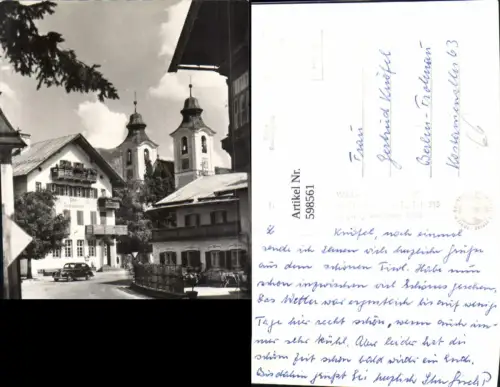 Artikel Nr.
598561
Frau
Gertrud Knöfel
Berlin-Frohnau
63
66
L Knöfel, noch einmal
sende ich Ihnen viele herzliche Grüße
aus dem schönen Tirol. Habe nun
schon inzwischen viel Schönes gesehen.
Das Wetter war eigentlich bis auf wenige
Tage hier recht schön, wenn auch im-
mer sehr kühl. Aber leider hat die
schöne Zeit schon bald wieder ein Ende.
Bis dahin grüßt Sie herzlich Ihre